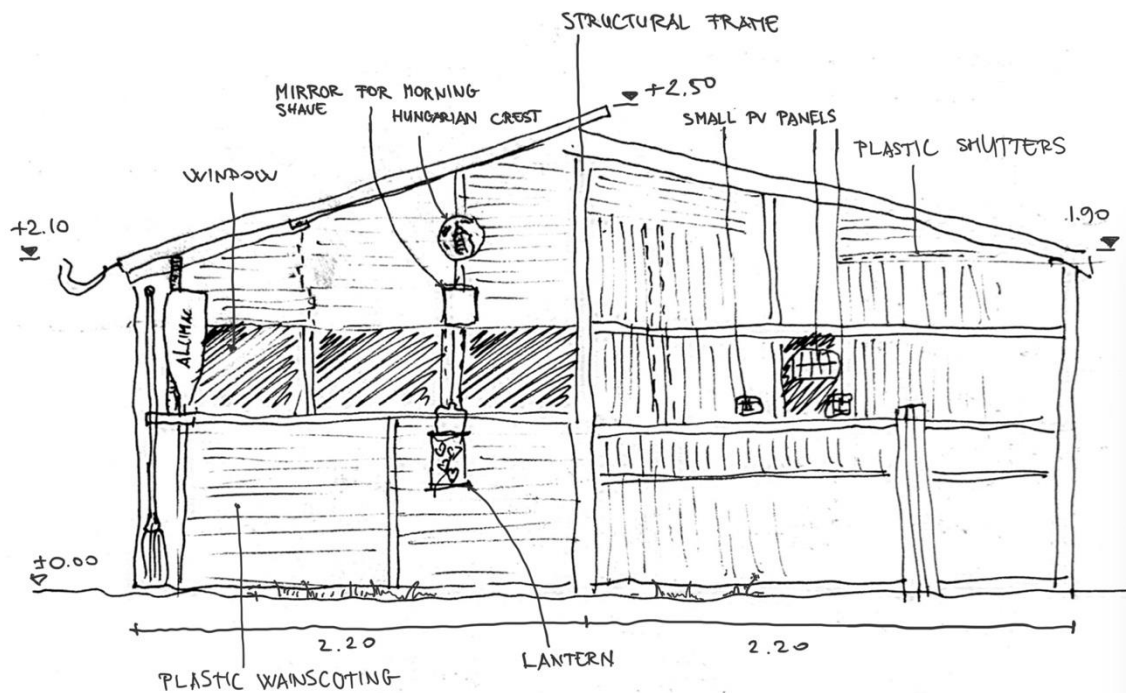 STRUCTURAL FRAME
MIRROR FOR MORNING
SHAVE
HUNGARIAN CREST
+2.50
SMALL PV PANELS
PLASTIC SHUTTERS
WINDOW
+2.10
1.90
ALUMAC
±0.00
2.20
2.20
LANTERN
PLASTIC WAINSCOTING